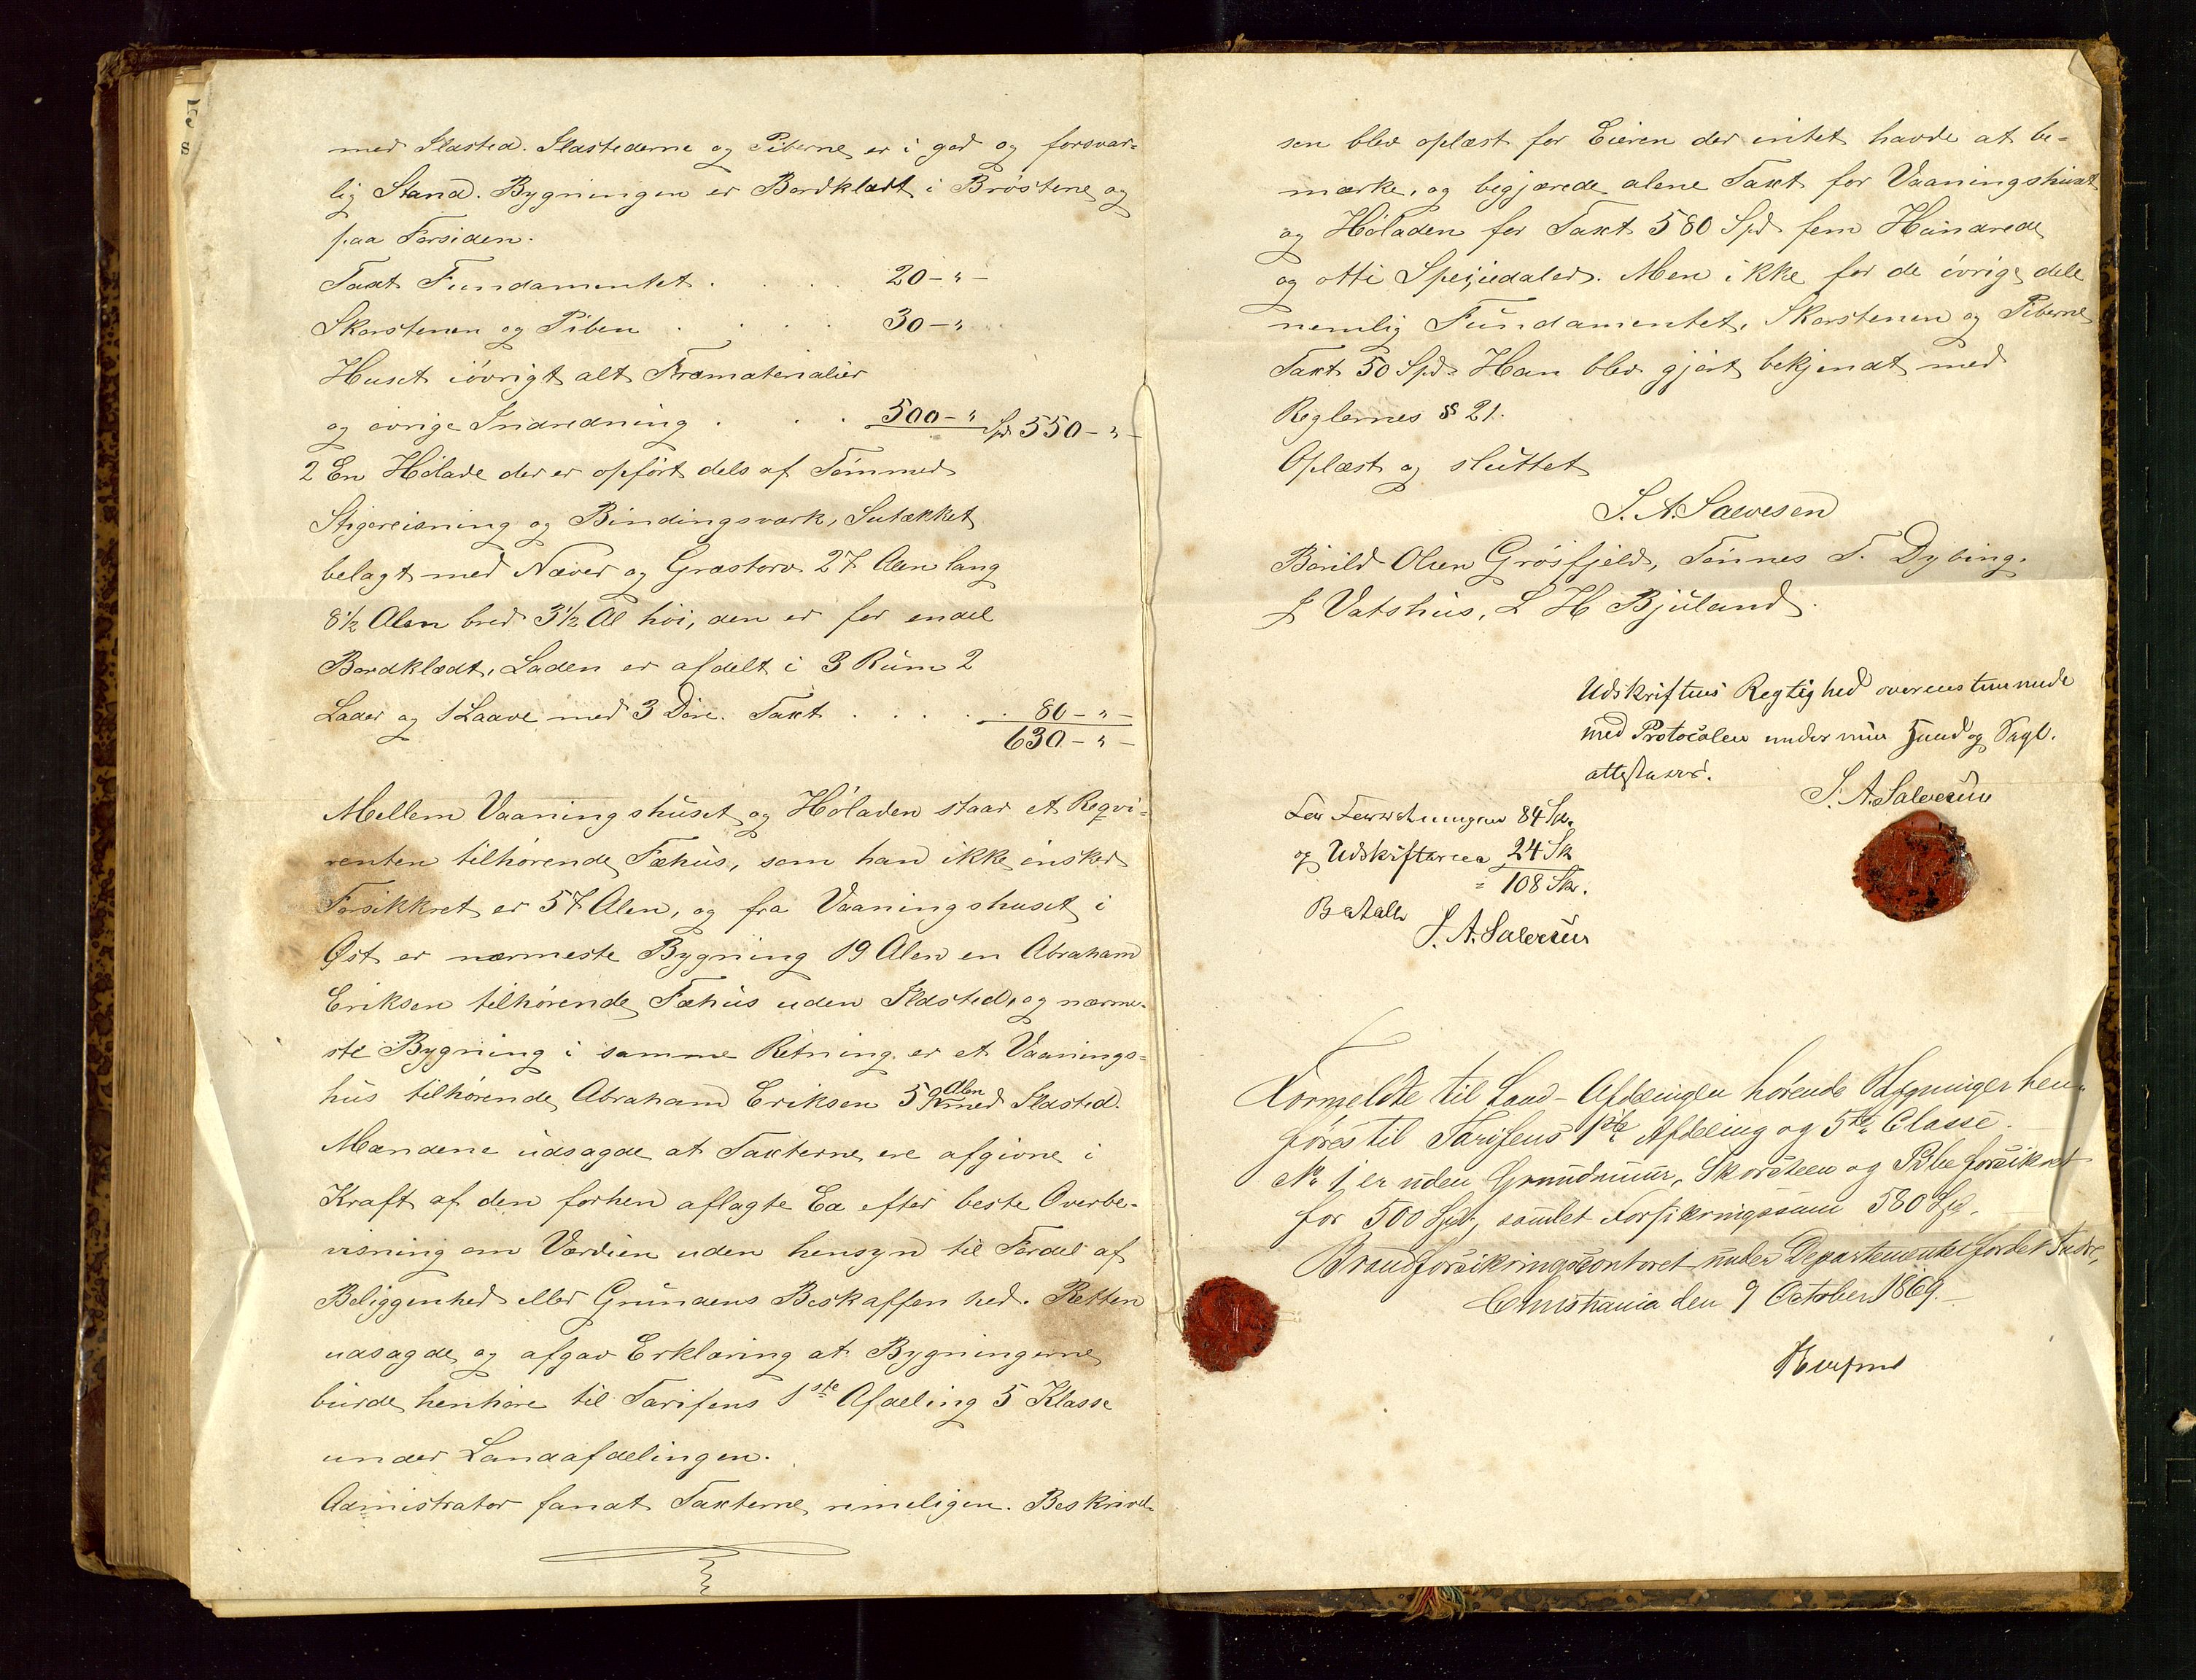 med Ildsted. Ildstederne og Piberne er i god og forsvar-
lig Stand. Bygningen er Bordklædt i Bröstene og
paa Forsiden.
Taxt Fundamentet . . . . 20 - " -
Skorstenen og Piben . . . . 30 - "
Huset iövrigt alt Træmaterialier
og övrige Indredning . . . 500 - " Spd 550 - " -
2 En Hölade der er opfört dels af Tömmer
Stigereisning og Bindingsværk, Sutækket
belagt med Næver og Græstorv 27 Alen lang
8½ Alen bred 3½ Al höi, den er for endel
Bordklædt, Laden er afdelt i 3 Rum 2
Lader og 1 Laave med 3 Döre. Taxt . . . . 80 - " -
630 - " -
Mellem Vaaningshuset og Höladen staar et Reqvi-
renten tilhörende Fæhus, som han ikke önsker
Forsikkret er 57 Alen, og fra Vaaningshuset i
Øst er nærmeste Bygning 19 Alen en Abraham
Eriksen tilhörende Fæhus uden Ildsted, og nærme-
ste Bygning i samme Retning er et Vaanings-
hus tilhörende Abraham Eriksen 59 Alen med Ildsted.
Mændene udsagde at Taxterne ere afgivne i
Kraft af den forhen aflagte Ed efter beste Overbe-
visning om Værdien uden hensyn til Fordel af
Beliggenhed eller Grundens Beskaffenhed. Retten
udsagde og afgav Erklæring at Bygningerne
burde henhöre til Tarifens 1ste Afdeling 5 Klasse
under Landafdelingen.
Admistrator fandt Taxterne rimeligen. Beskrivel-
sen blev oplæst for Eieren der intet havde at be-
mærke, og begjærede alene Taxt for Vaaningshuset
og Höladen for Taxt 580 Spd fem Hundrede
og otti Speciedaler. Men ikke for de övrige dele
nemlig Fundamentet, Skorstenen og Piberne
Taxt 50 Spd. Han blev gjort bekjendt med
Reglernes § 21.
Oplæst og sluttet
S. A. Salvesen
Börild Olsen Grösfjeld, Tönnes T. Dybing.
J Vatshus, L H Bjuland.
Udskriftens Regtighed overenstemmende
med Protocolen under min Haand og Segl.
attesteres.
S. A. Salvesen
For Forretningen 84 Sk.
og Udskriften 24 Sk
= 108 Sk.
Betalt
S. A. Salvesen
Formeldte til Land-Afdelingen hörende Bygninger hen-
föres til Tarifens 1ste Afdeling og 5te Classe.
No 1 er uden Grundmuur, Skorsteen og Pibe forsikret
for 500 Spd, samlet Forsikringssum 580 Spd.
Brandforsikringscontoret under Departementet for det Indre,
Christiania den 9 October 1869.